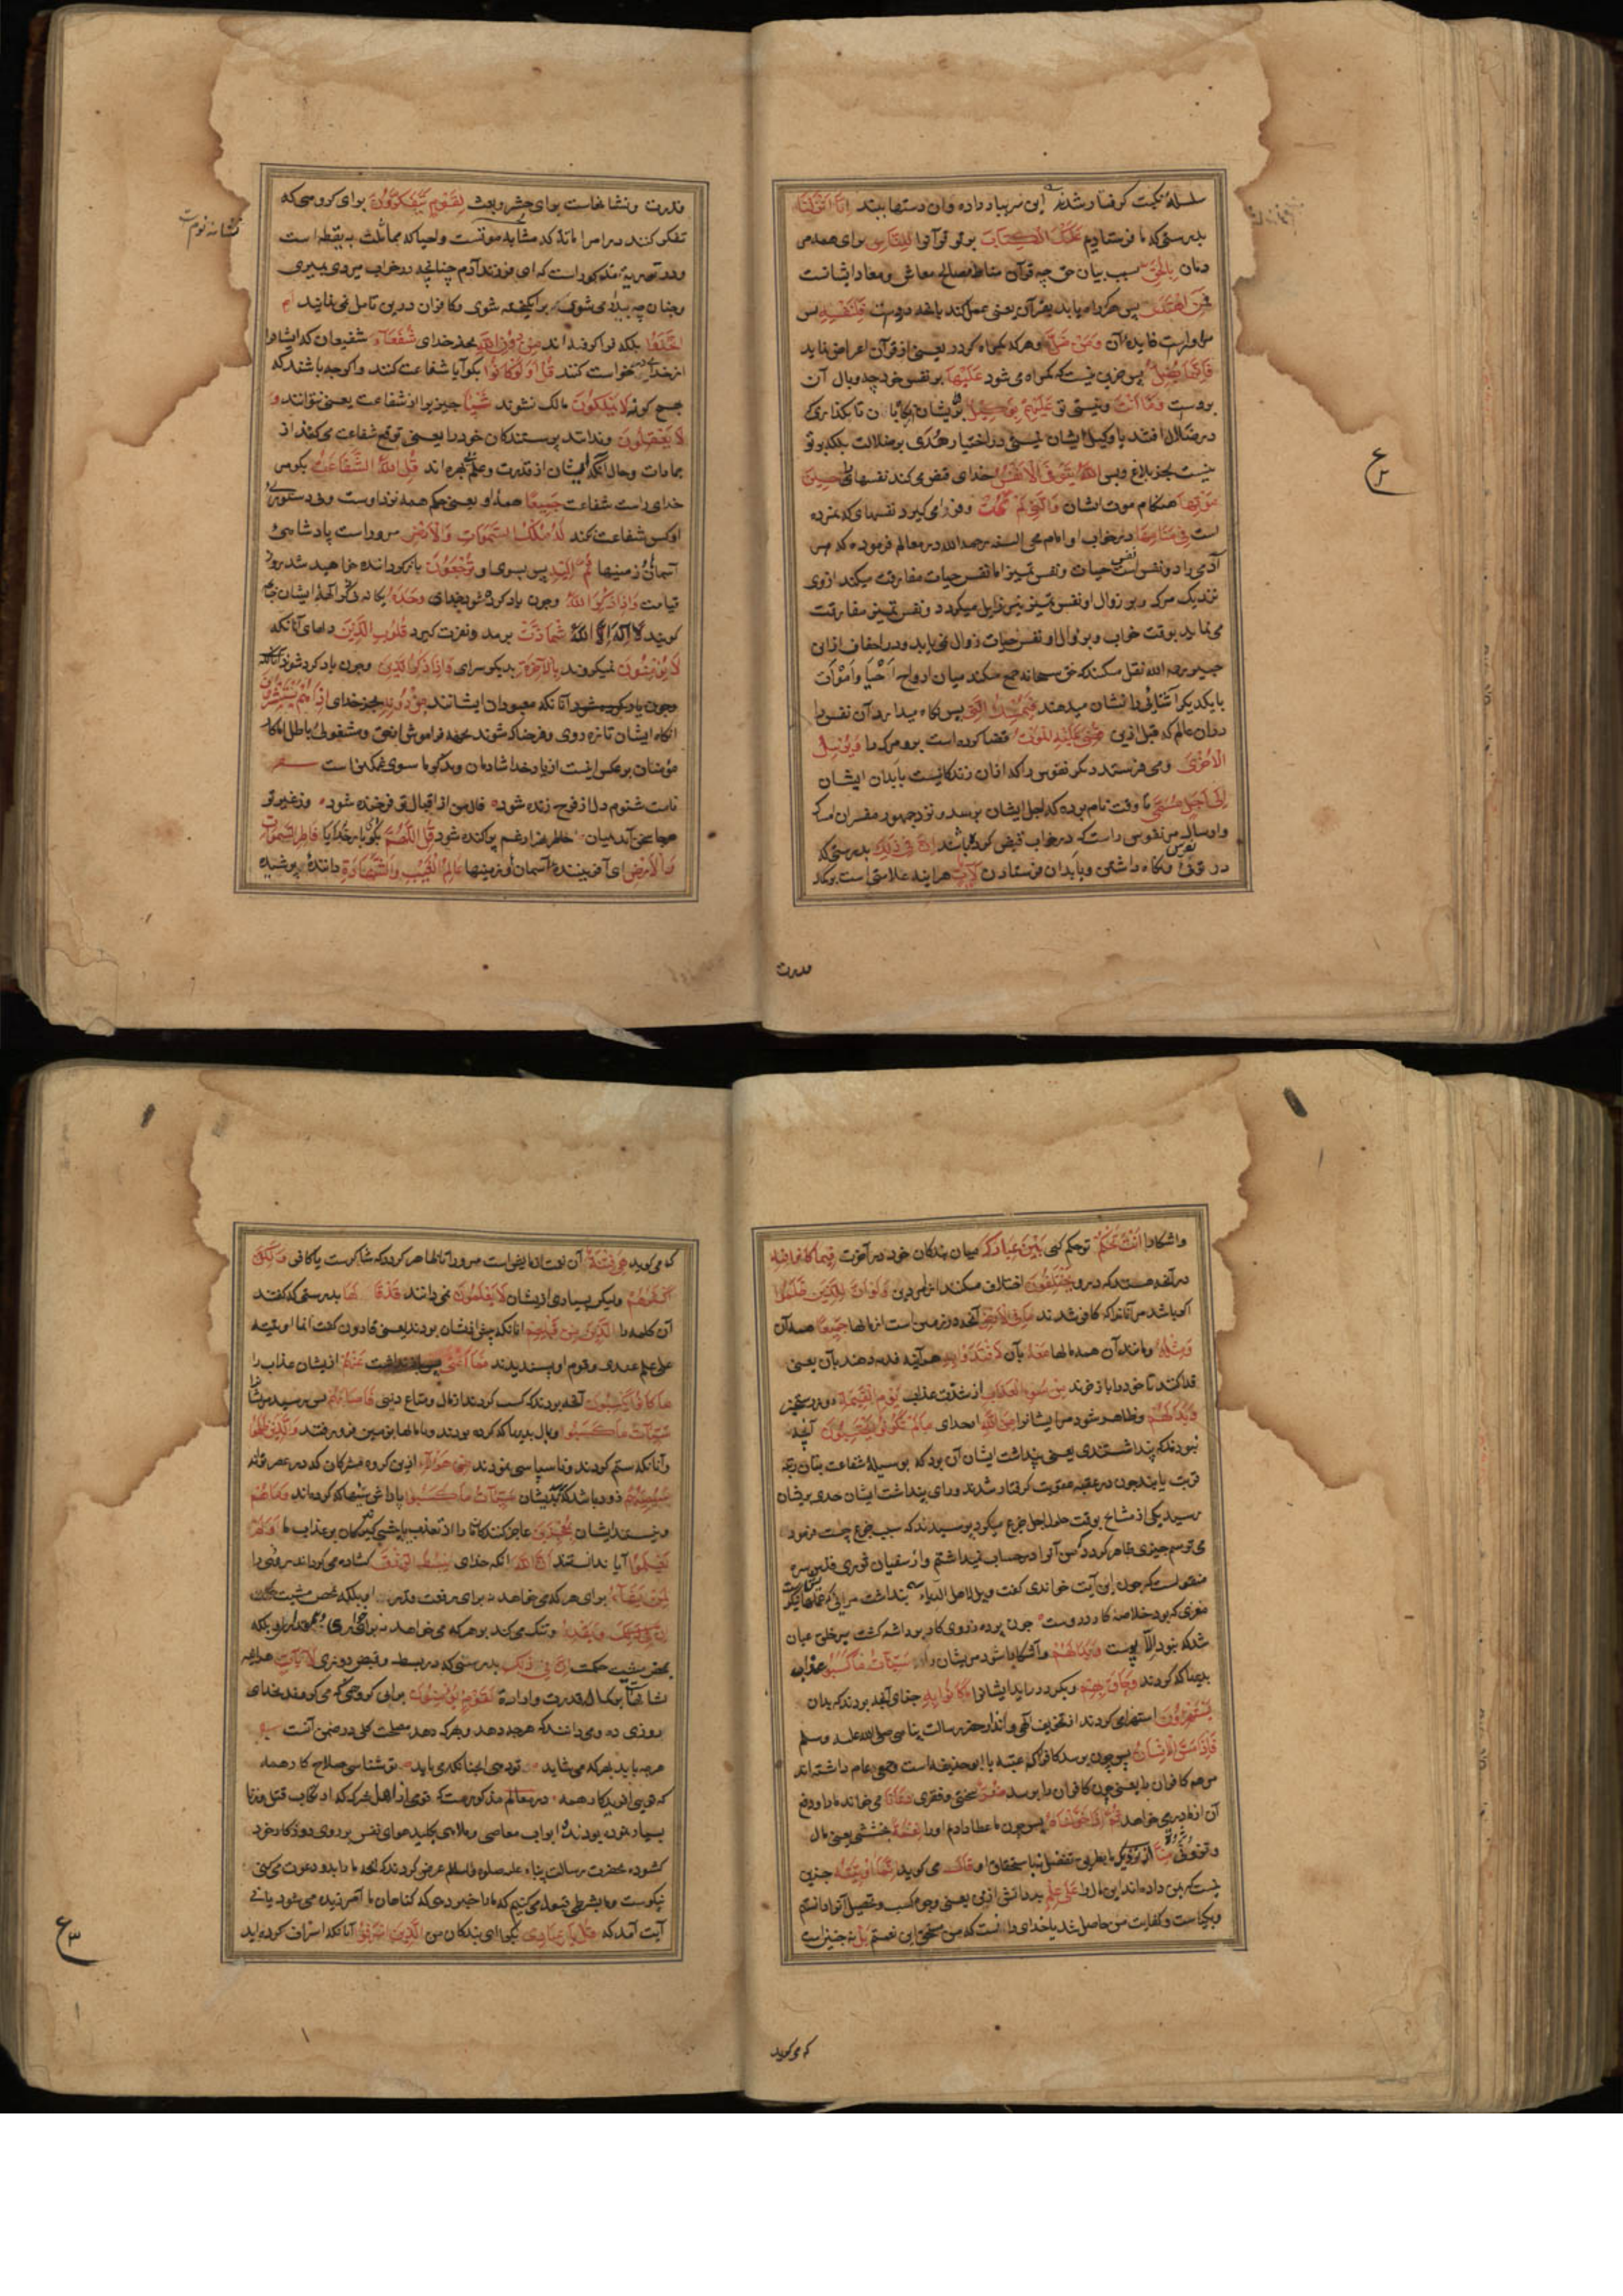 سلسلهٔ نکبت کرفتار شدند این سر بباد داده وان دستها ببند اِنَّا اَنْزَلْنَا
بدرستی که ما فرستادیم عَلَیْكَ الْكِتَابَ بر تو قرآنرا لِلنَّاسِ برای همه مر
دمان بِالْحَقِّ بسبب بیان حق چه قرآن مناط مصالح معاش و معاد ایشانست
فَمَنِ اهْتَدَی پس هرکه راه یابد بقرآن یعنی عمل کند بانچه دروست فَلِنَفْسِهِ پس
مر اوراست فایدهٔ آن وَمَنْ ضَلَّ وهرکه کمراه کردد یعنی از قرآن اعراض نماید
فَاِنَّمَا یَضِلُّ پس جزین نیست که کمراه می شود عَلَیْهَا بر نفس خود چه وبال آن
بروست وَمَا اَنْتَ ونیستی تو عَلَیْهِمْ بِوَکِیلٍ بر ایشان نکاهبان تا نکذاری که
در ضلال افتد یا وکیل ایشان نیستی در اختیار هُدَی بر ضلالت بلکه بر تو
نیست بجز بلاغ وبس اَللّٰهُ یَتَوَفَّی الْاَنْفُسَ خدای قبض می کند نفسها را حِینَ
مَوْتِهَا هنکام موت ایشان وَالَّتِی لَمْ تَمُتْ وفرا می کیرد نفسهای که نمرده
است فِی مَنَامِهَا در خواب او امام محی السنه رحمه الله در معالم فرموده که هر
آدمی را دو نفس است نفس حیات ونفس تمییز اما نفس حیات مفارقت میکند ازوی
نزدیک مرک وبزوال او نفس تمییز نیز زایل میکردد ونفس تمییز مفارقت
می نماید بوقت خواب وبزوال او نفس حیات زوال نمی یابد ودر احقاف از ابن
جبیر رحمه الله نقل میکند که حق سبحانه جمع میکند میان ارواح اَحْیَا وَاَمْوَات
با یکدیکر آشنائی را نشان میدهند فَیُمْسِكُ الَّتِی پس نکاه میدارد آن نفس را
دران عالم که قبل ازین قَضَی عَلَیْهَا الْمَوْتَ قضا کرده است برو مرک را وَیُرْسِلُ
الْاُخْرَی ومی فرستد دیکر نفوس را که از ان زندکانیست بابدان ایشان
اِلَی اَجَلٍ مُسَمًّی تا وقت نام برده که اجل ایشان برسد ونزد جمهور مفسران امساک
وارسال مر نفوسی راست که در خواب قبض کرده باشند اِنَّ فِی ذٰلِكَ بدرستی که
در توفی نفوس ونکاه داشتن وبابدان فرستادن لَاٰیَاتٍ هر اینه علامتی است بر کمال
قدرت
قدرت ونشانهاست برای حشر وبعث لِقَوْمٍ یَتَفَكَّرُونَ برای کروهی که
نشانه نوم است
تفکر کنند در امر اماته که مشابه موتست واحیا که مماثلت به یقظه است
ودر توریة مذکور است که ای فرزند آدم چنانچه در خواب میروی میمیری
وچنان چه بیدار می شوی بر انکیخته شوی وکافران درین تامل نمی نمایند اَمِ
اتَّخَذُوا بلکه فرا کرفته اند مِنْ دُونِ اللّٰهِ بجز خدای شُفَعَآءَ شفیعان که ایشانرا
از خدای درخواست کنند قُلْ اَوَلَوْ كَانُوا بکو آیا شفاعت کنند واکرچه باشند که
بهیچ کونه لَا یَمْلِكُونَ مالک نشوند شَیْئًا چیزیرا از شفاعت یعنی نتوانند وَ
لَا یَعْقِلُونَ وندانند پرستندکان خود را یعنی توقع شفاعت می کنند از
جمادات وحال آنکه ایشان از قدرت وعلم بی بهره اند قُلْ لِلّٰهِ الشَّفَاعَةُ بکو مر
خدای راست شفاعت جَمِیعًا همهٔ او یعنی حکم همه نزد اوست وبی دستوری
او کس شفاعت نکند لَهُ مُلْكُ السَّمٰوَاتِ وَالْاَرْضِ مر وراست پادشاهی
آسمانها وزمینها ثُمَّ اِلَیْهِ پس بسوی او تُرْجَعُونَ باز کردانده خواهید شد بروز
قیامت وَاِذَا ذُكِرَ اللّٰهُ وچون یاد کرده شود خدای وَحْدَهُ یکانه
کویند لَا اِلٰهَ اِلَّا اللّٰهُ اشْمَاَزَّتْ برمد ونفرت کیرد قُلُوبُ الَّذِینَ دلهای آنانکه
لَا یُؤْمِنُونَ نمیکروند بِالْاٰخِرَةِ بدیکر سرای وَاِذَا ذُكِرَ الَّذِینَ وچون یاد کرده شوند آنانکه
وچون یاد کرده شود آنانکه معبودان ایشانند مِنْ دُونِهِ بجز خدای اِذَا هُمْ یَسْتَبْشِرُونَ
انکاه ایشان تازه روی وفرحناک شوند بجهة فراموشی از حق ومشغولی باطل اما کار
مؤمنان بر عکس اینست از یاد خدا شادمان وبذکر ما سوی غمکین است شعر
نامت شنوم دل از فرح زنده شود فال من از اقبال تو فرخنده شود وز غیر تو
هر جا سخنی آید بمیان خاطر هزار غم پراکنده شود قُلِ اللّٰهُمَّ بکوی بار خدایا فَاطِرَ السَّمٰوَاتِ
وَالْاَرْضِ ای آفرینندهٔ آسمان وزمینها عَالِمَ الْغَیْبِ وَالشَّهَادَةِ دانندهٔ پوشیده
واشکارا اَنْتَ تَحْكُمُ تو حکم کنی بَیْنَ عِبَادِكَ میان بندکان خود در آخرت فِیمَا كَانُوا فِیهِ
در آنچه هستند که درو یَخْتَلِفُونَ اختلاف میکنند از امر دین وَلَوْ اَنَّ لِلَّذِینَ ظَلَمُوا
اکر باشد مر آنانرا که کافر شدند مَا فِی الْاَرْضِ آنچه در زمین است از مالها جَمِیعًا همه آن
وَمِثْلَهُ ومانند آن همه مالها مَعَهُ بآن لَافْتَدَوْا بِهِ هر آینه فدیه دهند بآن یعنی
فدا کنند تا خود را باز خرند مِنْ سُوءِ الْعَذَابِ از شدت عذاب یَوْمَ الْقِیٰمَةِ روز رستخیز
وَبَدَا لَهُمْ وظاهر شود مر ایشانرا مِنَ اللّٰهِ از خدای مَا لَمْ یَكُونُوا یَحْتَسِبُونَ آنچه
نبودند که پنداشتندی یعنی پنداشت ایشان آن بود که بوسیلهٔ شفاعت بتان رتبه
قربت یابند چون در عقبه عقوبت کرفتار شدند ورای پنداشت ایشان چیزی بریشان
رسید یکی از مشایخ بوقت حلول اجل جزع میکرد پرسیدند که سبب جزع چیست فرمود
می ترسم چیزی ظاهر کردد که من آنرا در حساب نمیداشتم واز سفیان ثوری قدس سره
منقولست که چون این آیت خواندی کفت ویل لاهل الریاء
مغزی که بود خلاصهٔ کار دروست چون پرده ز روی کار برداشته کشت بر خلق عیان
شد که نبود الا پوست وَبَدَا لَهُمْ واشکارا شود مریشان را سَیِّئَاتُ مَا كَسَبُوا عذاب
بدیها که کردند وَحَاقَ بِهِمْ وبکرد در آید ایشانرا مَا كَانُوا بِهِ جزای آنچه بودند که بدان
یَسْتَهْزِؤُنَ استهزا می کردند از تخویف الهی وانذار حضرت رسالت پناهی صلی الله علیه وسلم
فَاِذَا مَسَّ الْاِنْسَانَ پس چون برسد کافر را که عتبه یا ابو حذیفه است وجمعی عام داشته اند
مر همه کافران را یعنی چون کافران را برسد ضُرٌّ سختی وفقری دَعَانَا می خواند مارا ودفع
آن از ما در می خواهد ثُمَّ اِذَا خَوَّلْنَاهُ پس چون ما عطا دادیم اورا نِعْمَةً بخششی یعنی مال
وثروتی مِنَّا از نزدیک ما بطریق تفضل نه باستحقاق او قَالَ می کوید اِنَّمَا اُوتِیتُهُ جزین
نیست که من داده اند این مال را عَلَی عِلْمٍ بر دانش از من یعنی وجوه کسب وتحصیل آنرا دانستم
وبکیاست وکفایت من حاصل شد یا خدای دانست که من مستحق این نعمتم بَلْ نه چنین است
که می کوید
که می کوید هِیَ فِتْنَةٌ آن نعمت ازمایش است مرورا تا ظاهر کردد که شاکرست یا کافر وَلٰكِنَّ
اَكْثَرَهُمْ ولیکن بسیاری ازیشان لَا یَعْلَمُونَ نمی دانند قَدْ قَالَهَا بدرستی که کفتند
آن کلمه را الَّذِینَ مِنْ قَبْلِهِمْ انانکه پیش از یشان بودند یعنی قارون کفت انما اوتیته
علی علم عندی وقوم او پسندیدند فَمَا اَغْنَی پس باز نداشت عَنْهُمْ ازیشان عذاب را
مَا كَانُوا یَكْسِبُونَ آنچه بودند که کسب کردند از مال ومتاع دنیی فَاَصَابَهُمْ پس برسید مریشانرا
سَیِّئَاتُ مَا كَسَبُوا وبال بدیها که کرده بودند ومالها بزمین فرو رفتند وَالَّذِینَ ظَلَمُوا
وآنانکه ستم کردند وناسپاسی نمودند مِنْ هٰؤُلَآءِ ازین کروه مشرکان که در عصر تواند
سَیُصِیبُهُمْ زود باشد که برسد بدیشان سَیِّئَاتُ مَا كَسَبُوا پاداش بدیها که کرده اند وَمَا هُمْ
ونیستند ایشان بِمُعْجِزِینَ عاجز کنندکان ما را از تعذیب یا پیشی کیرندکان بر عذاب ما اَوَلَمْ
یَعْلَمُوا آیا ندانستند اَنَّ اللّٰهَ انکه خدای یَبْسُطُ الرِّزْقَ کشاده می کرداند روزی را
لِمَنْ یَشَآءُ برای هرکه می خواهد نه برای رفعت وقدر او بلکه بمحض مشیت
وَیَقْدِرُ وتنک می کند بر هر که می خواهد نه برای خواری وبی مقداری او بلکه
بمحض مشیت حکمت اِنَّ فِی ذٰلِكَ بدرستی که در بسط وقبض روزی لَاٰیَاتٍ هر اینه
نشانهاست بر کمال قدرت وارادت لِقَوْمٍ یُؤْمِنُونَ برای کروهی که می کروند بخدای
روزی ده ومی دانند که هر چه دهد وبهرکه دهد مصلحت کلی در ضمن آنست
هر چه باید بهر که می شاید تو دهی انچنانکه می باید تو شناسی صلاح کار همه
در معالم مذکورست که قومی از اهل شرک که ارتکاب قتل وزنا
بسیار نموده بودند وابواب معاصی وملاهی بکلید هوای نفس بر روی روزکار خود
کشوده بحضرت رسالت پناه علیه صلوة والسلام عرض کردند که انچه ما را بدو دعوت می کنی
نیکوست وما بشرطی قبول می کنیم که ما را خبر دهی که کناهان ما آمرزیده می شود یا نی
آیت آمد که قُلْ یَا عِبَادِیَ بکو ای بندکان من الَّذِینَ اَسْرَفُوا آنانکه اسراف کرده اید